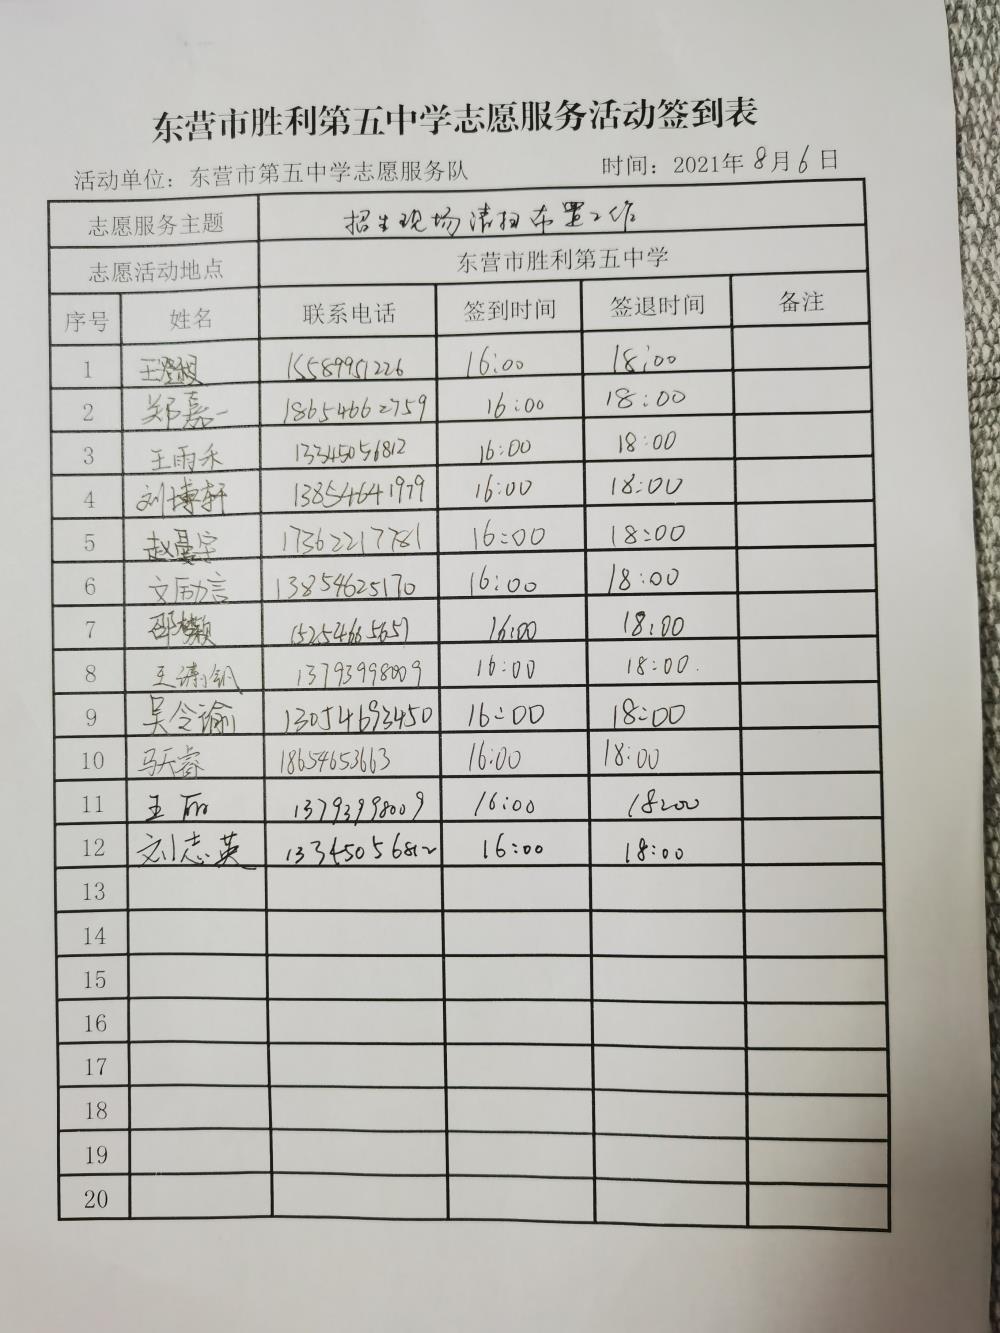 东营市胜利第五中学志愿服务活动签到表
活动单位：东营市第五中学志愿服务队 时间：2021年8月6日
志愿服务主题 招生现场清扫布置工作
志愿活动地点 东营市胜利第五中学
序号 姓名 联系电话 签到时间 签退时间 备注
1 15589951226 16:00 18:00
2 郑嘉一 18654662759 16:00 18:00
3 王雨禾 13345056812 16:00 18:00
4 刘博轩 13854641979 16:00 18:00
5 赵曼宇 17362217781 16:00 18:00
6 文励言 13854625170 16:00 18:00
7 15254665657 16:00 18:00
8 13793998009 16:00 18:00.
9 吴令谕 13054693450 16:00 18:00
10 马天睿 18654653663 16:00 18:00
11 王丽 13793998009 16:00 18:00
12 刘志英 13345056812 16:00 18:00
13
14
15
16
17
18
19
20